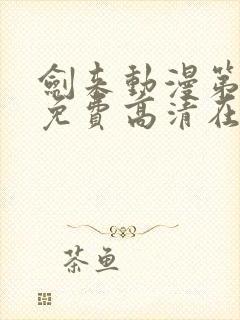 劍來動漫第
免費高清在
茶鱼